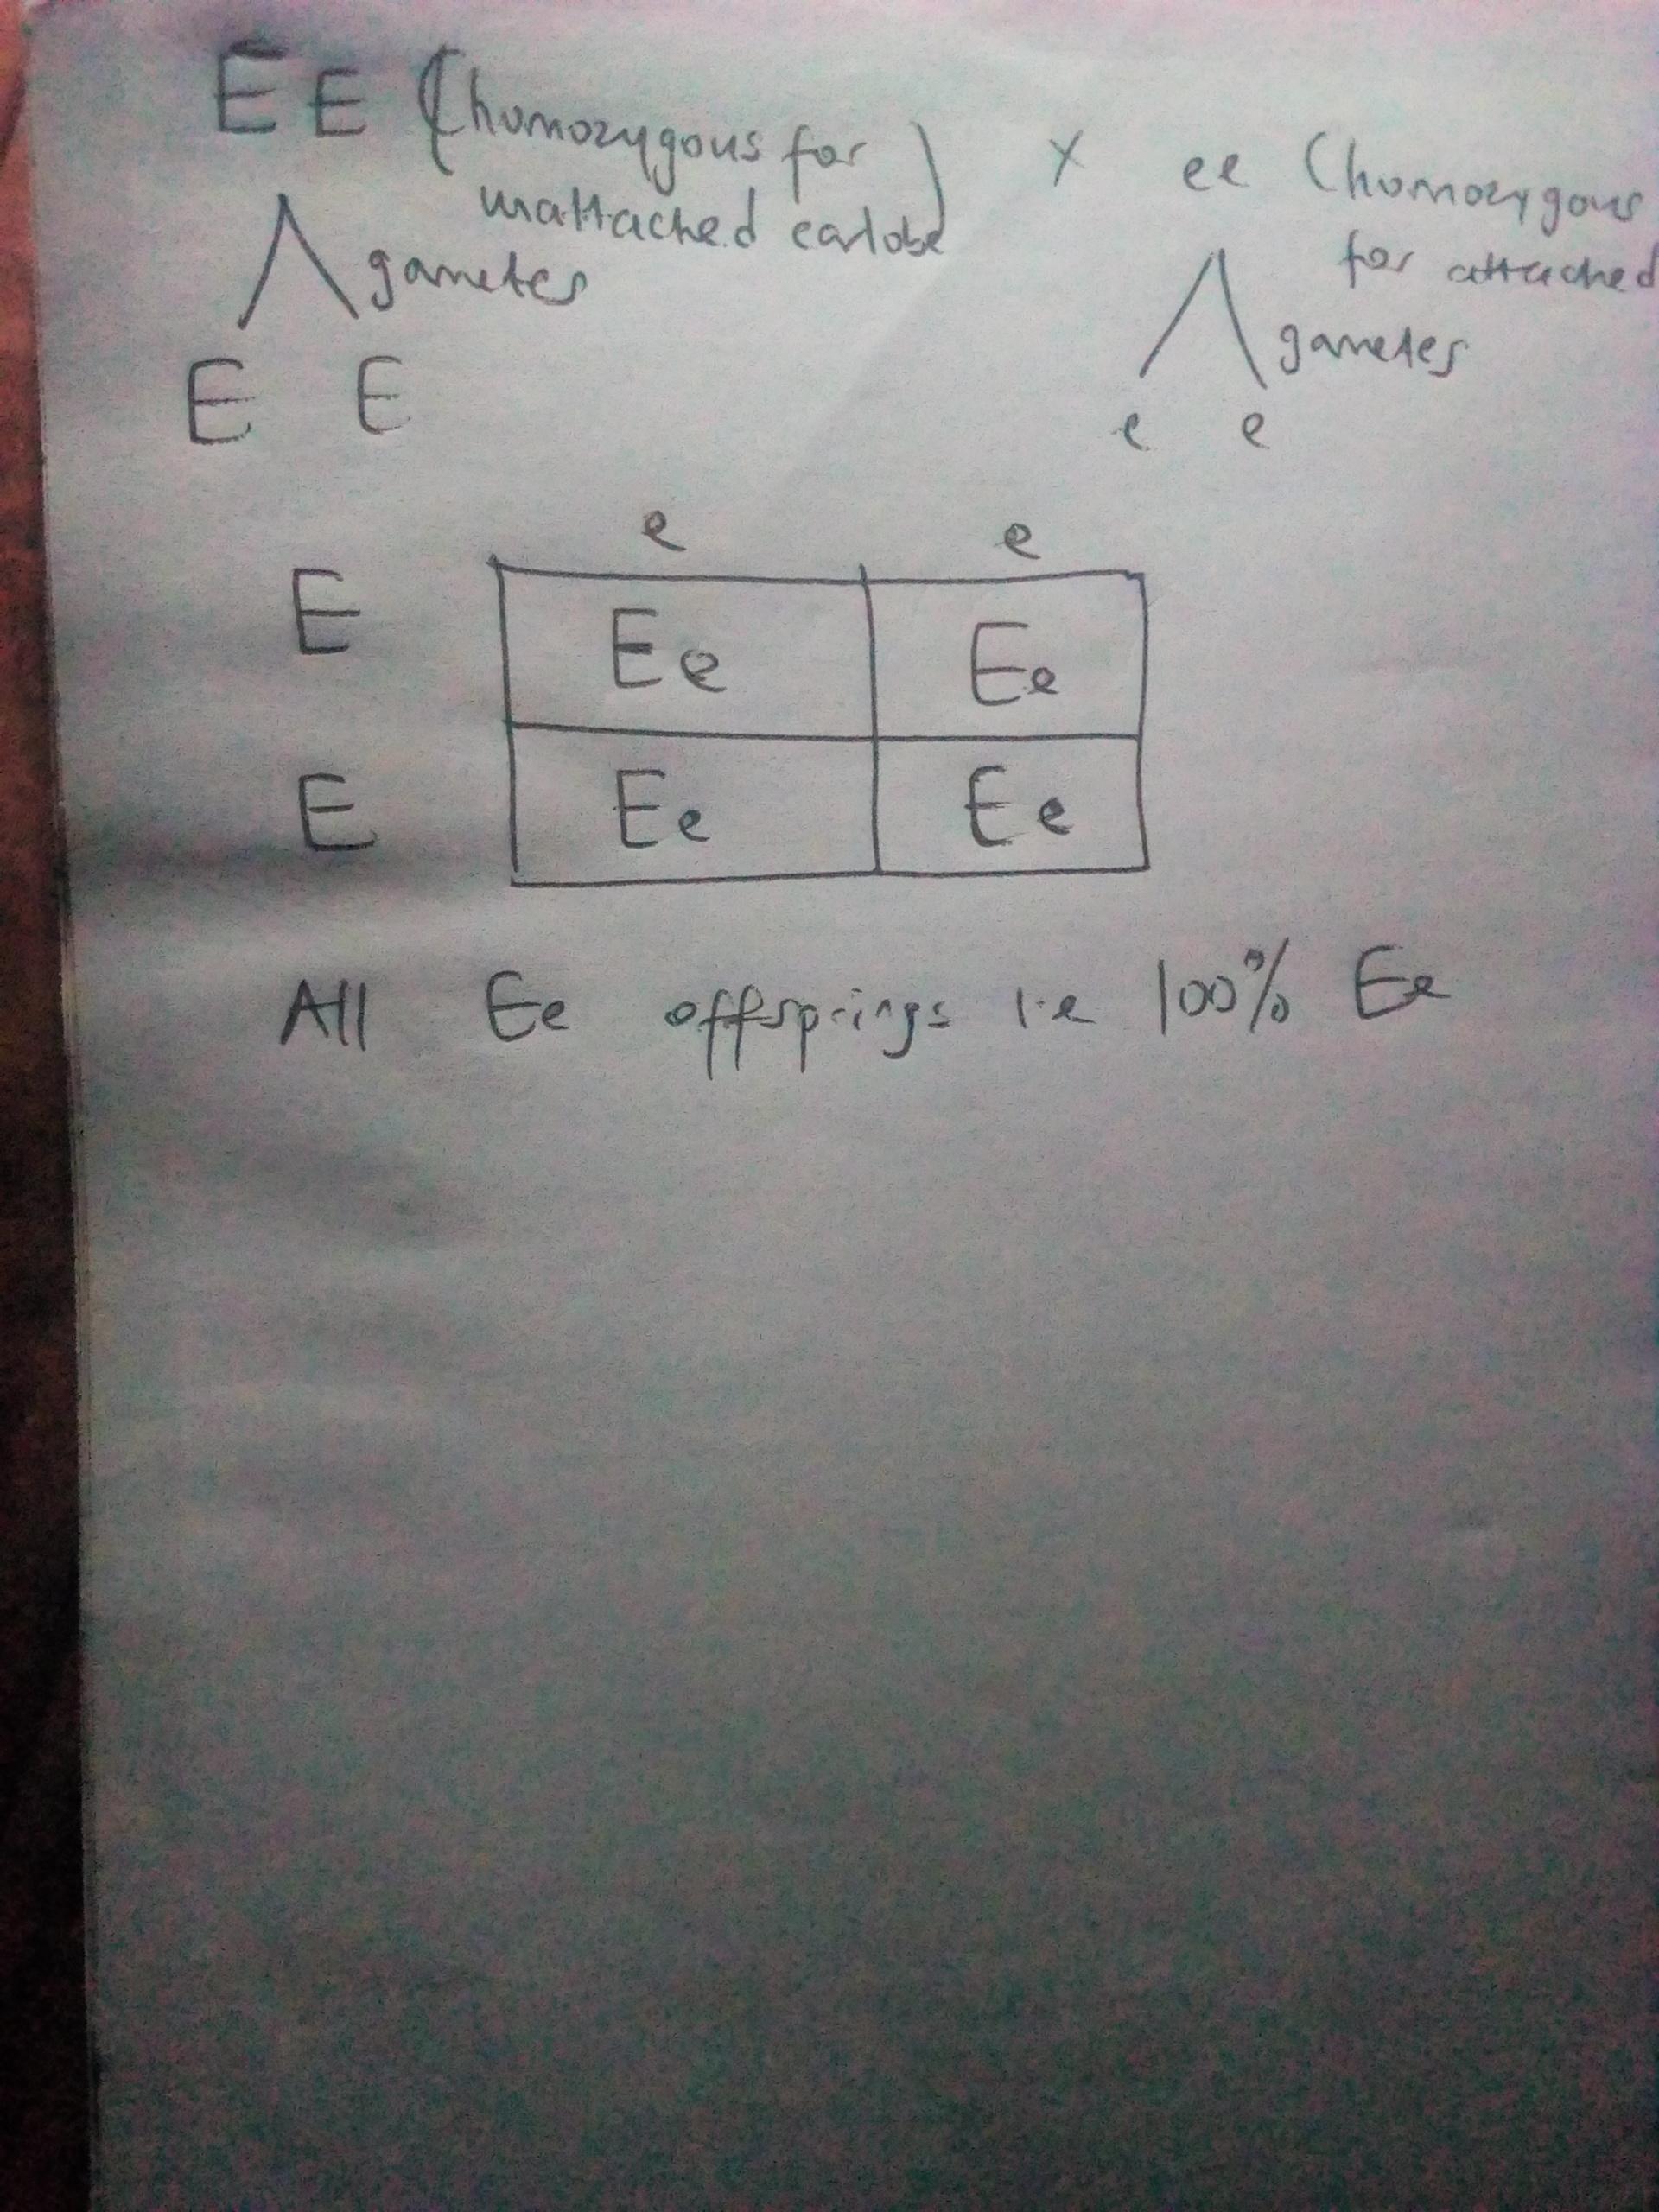 EE (homozygous for
unattached earlobe)
x ee (homozygous
for attached
gametes
gametes
E E
e e
e e
E Ee Ee
E Ee Ee
All Ee offsprings i.e 100% Ee